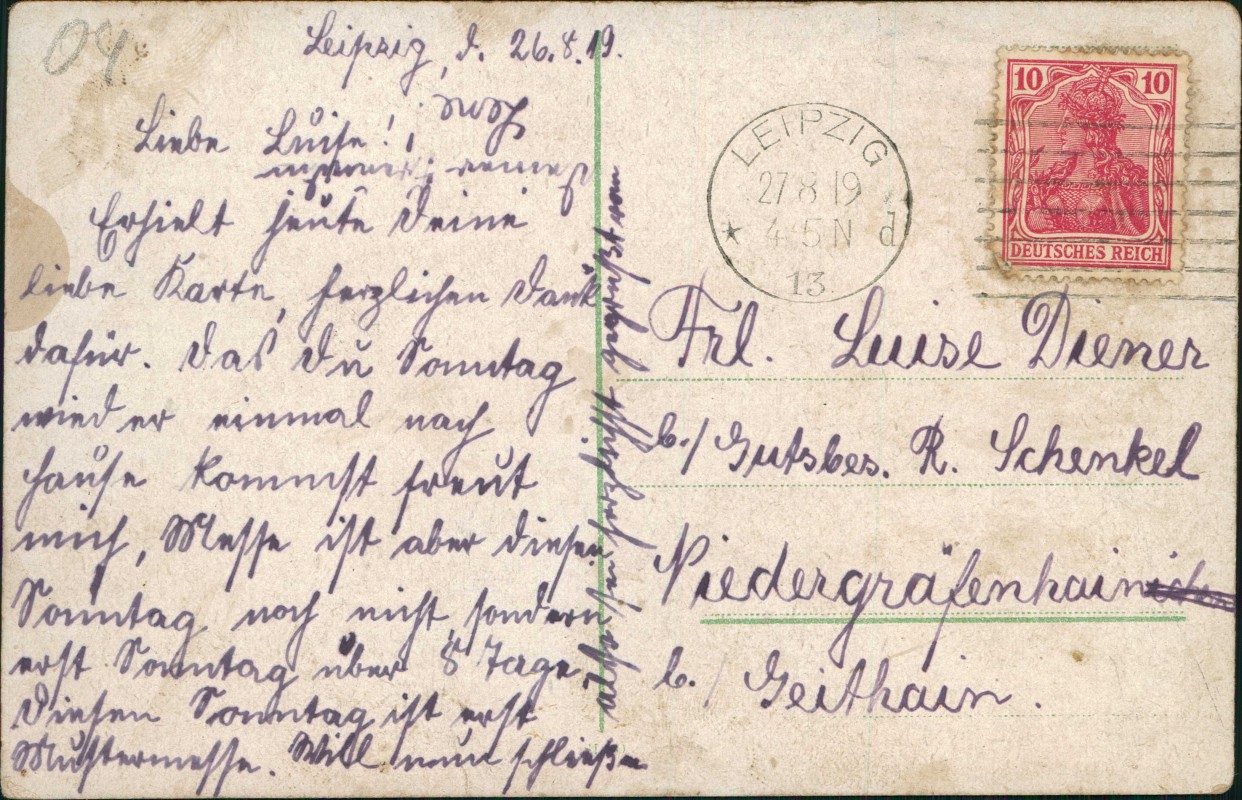 04
Leipzig, d. 26.8.19.
Liebe Luise!
Erhielt heute Deine
liebe Karte, herzlichen Dank
dafür. Das Du Sonntag
wieder einmal nach
hause kommst freut
mich, Messe ist aber diesen
Sonntag noch nicht, sondern
erst Sonntag über 8 Tage.
Diesen Sonntag ist erst
Mustermesse. Will nun schließen
LEIPZIG
27.8.19
4-5 N d
13.
10 10
DEUTSCHES REICH
Frl. Luise Diener
b./ Gutsbes. R. Schenkel
Niedergräfenhain
b./ Geithain.